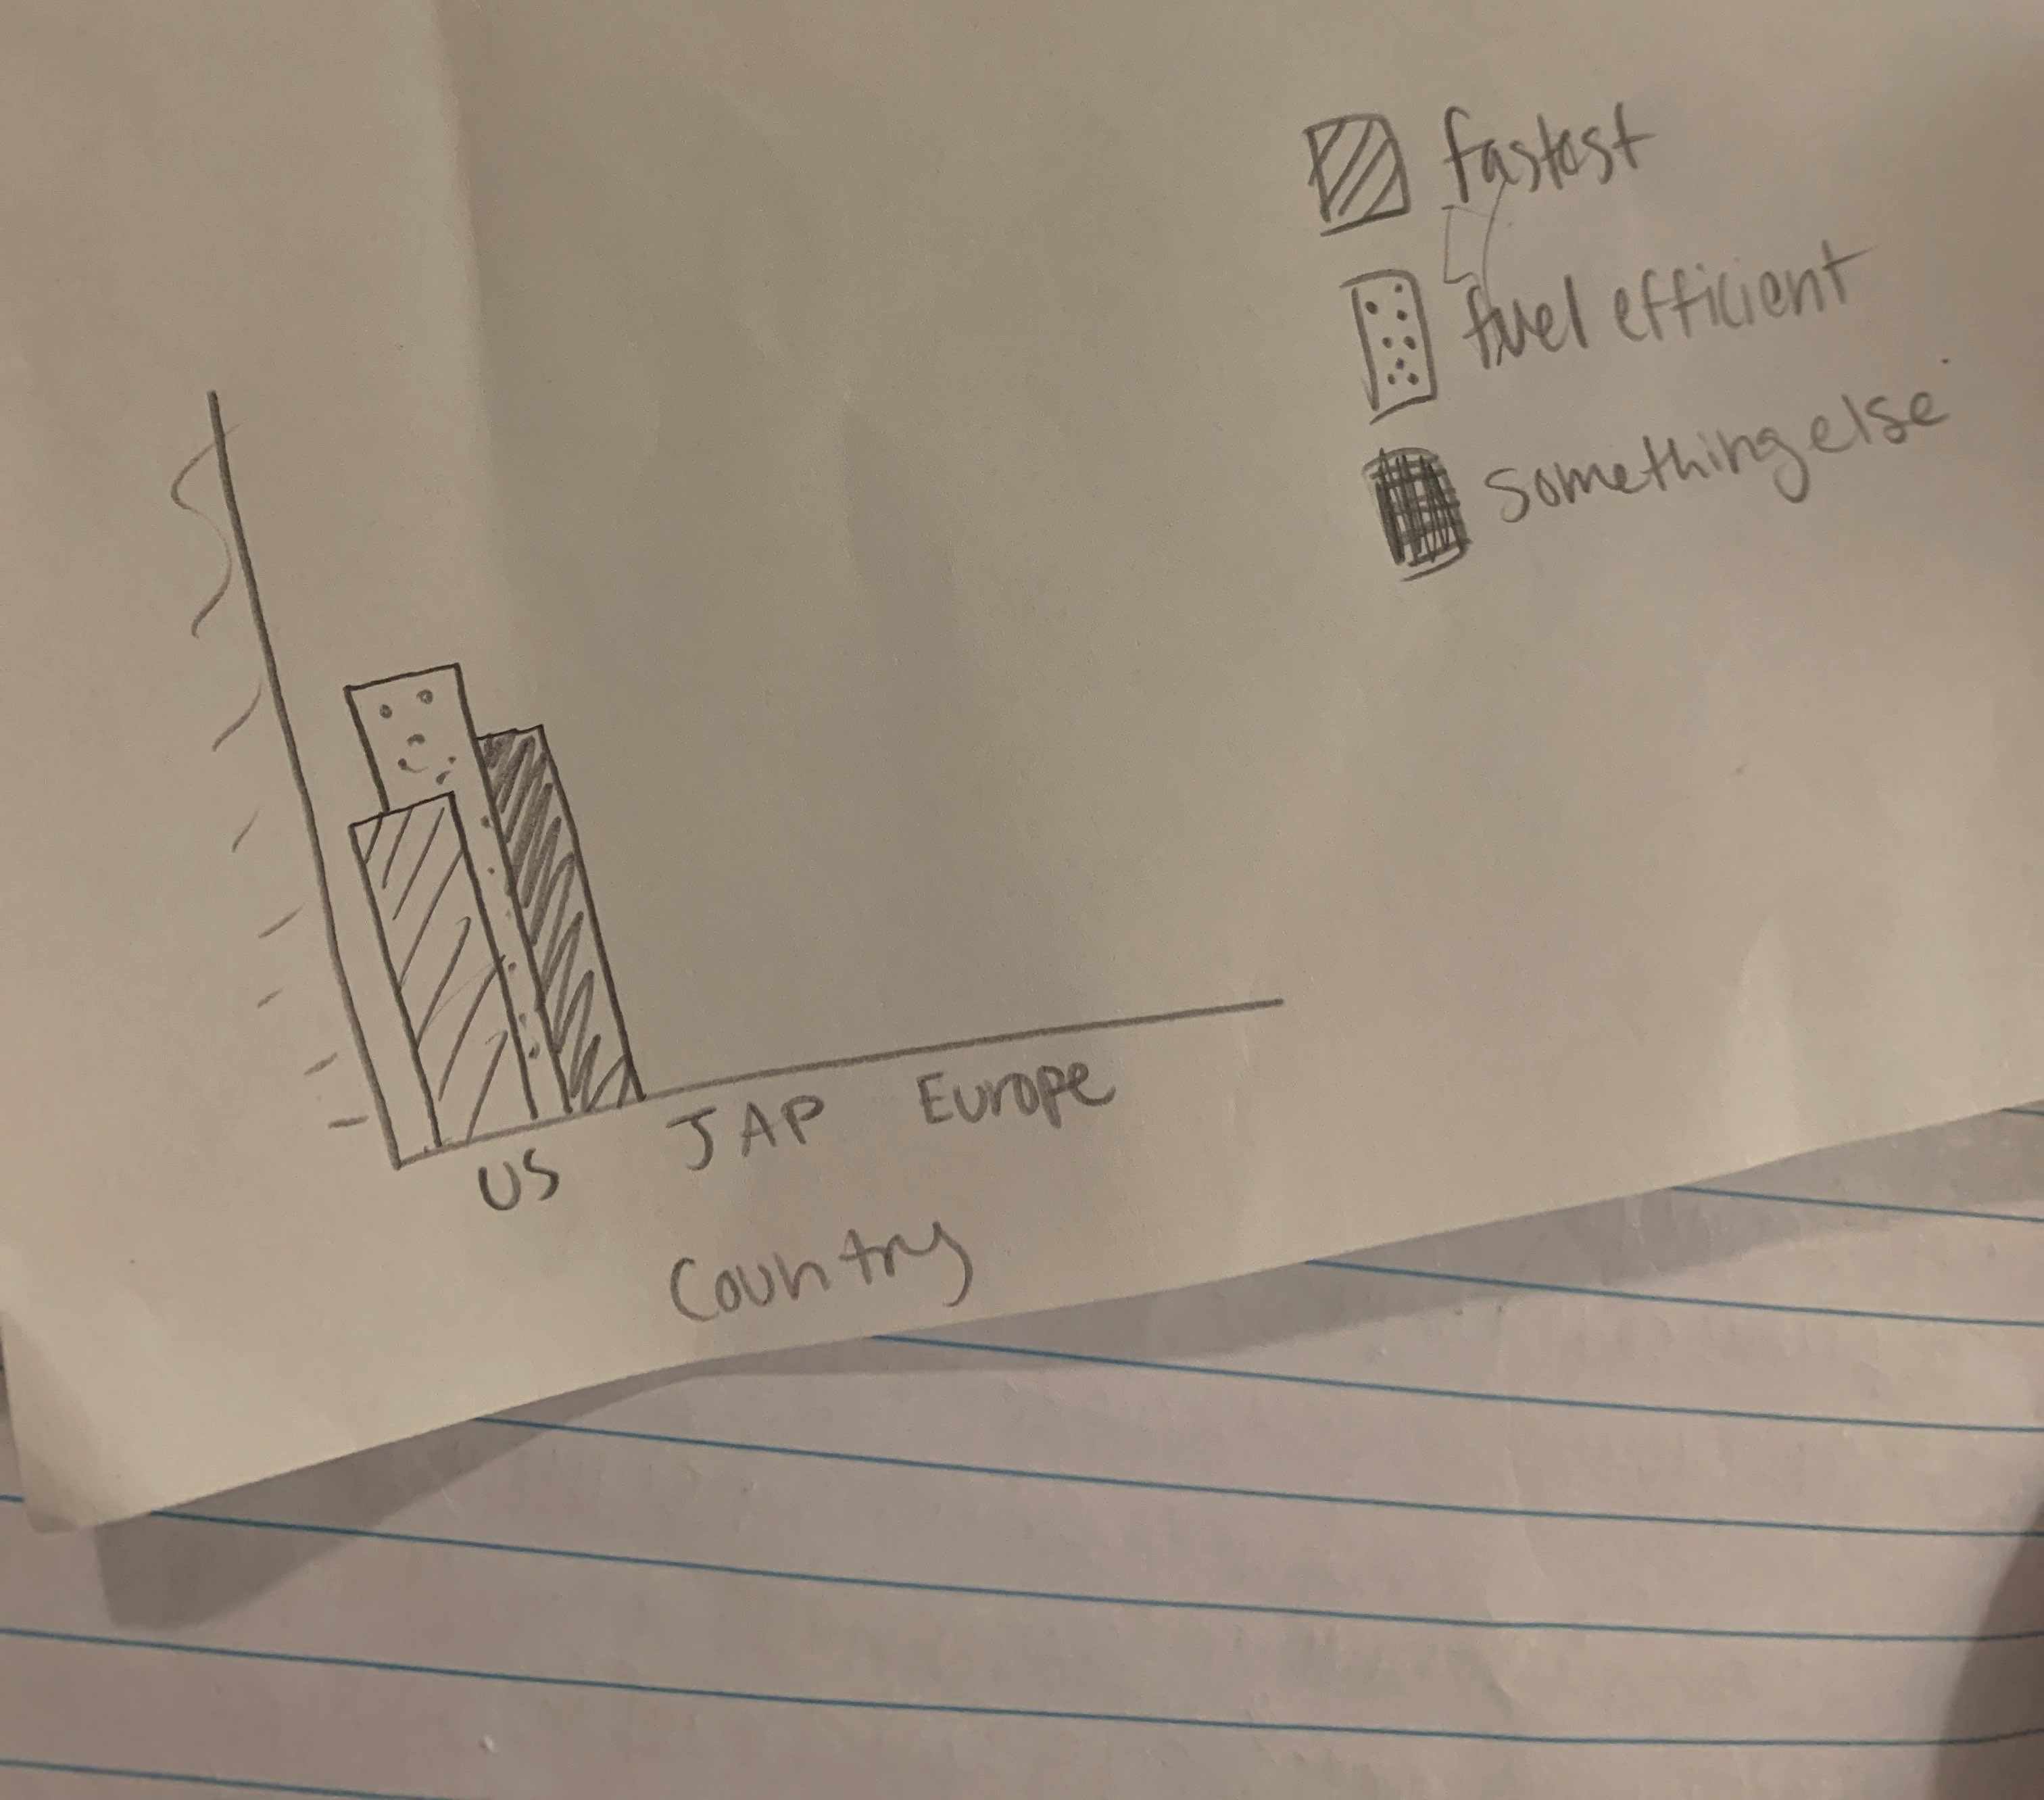 fastest
fuel efficient
something else
US JAP Europe
Country